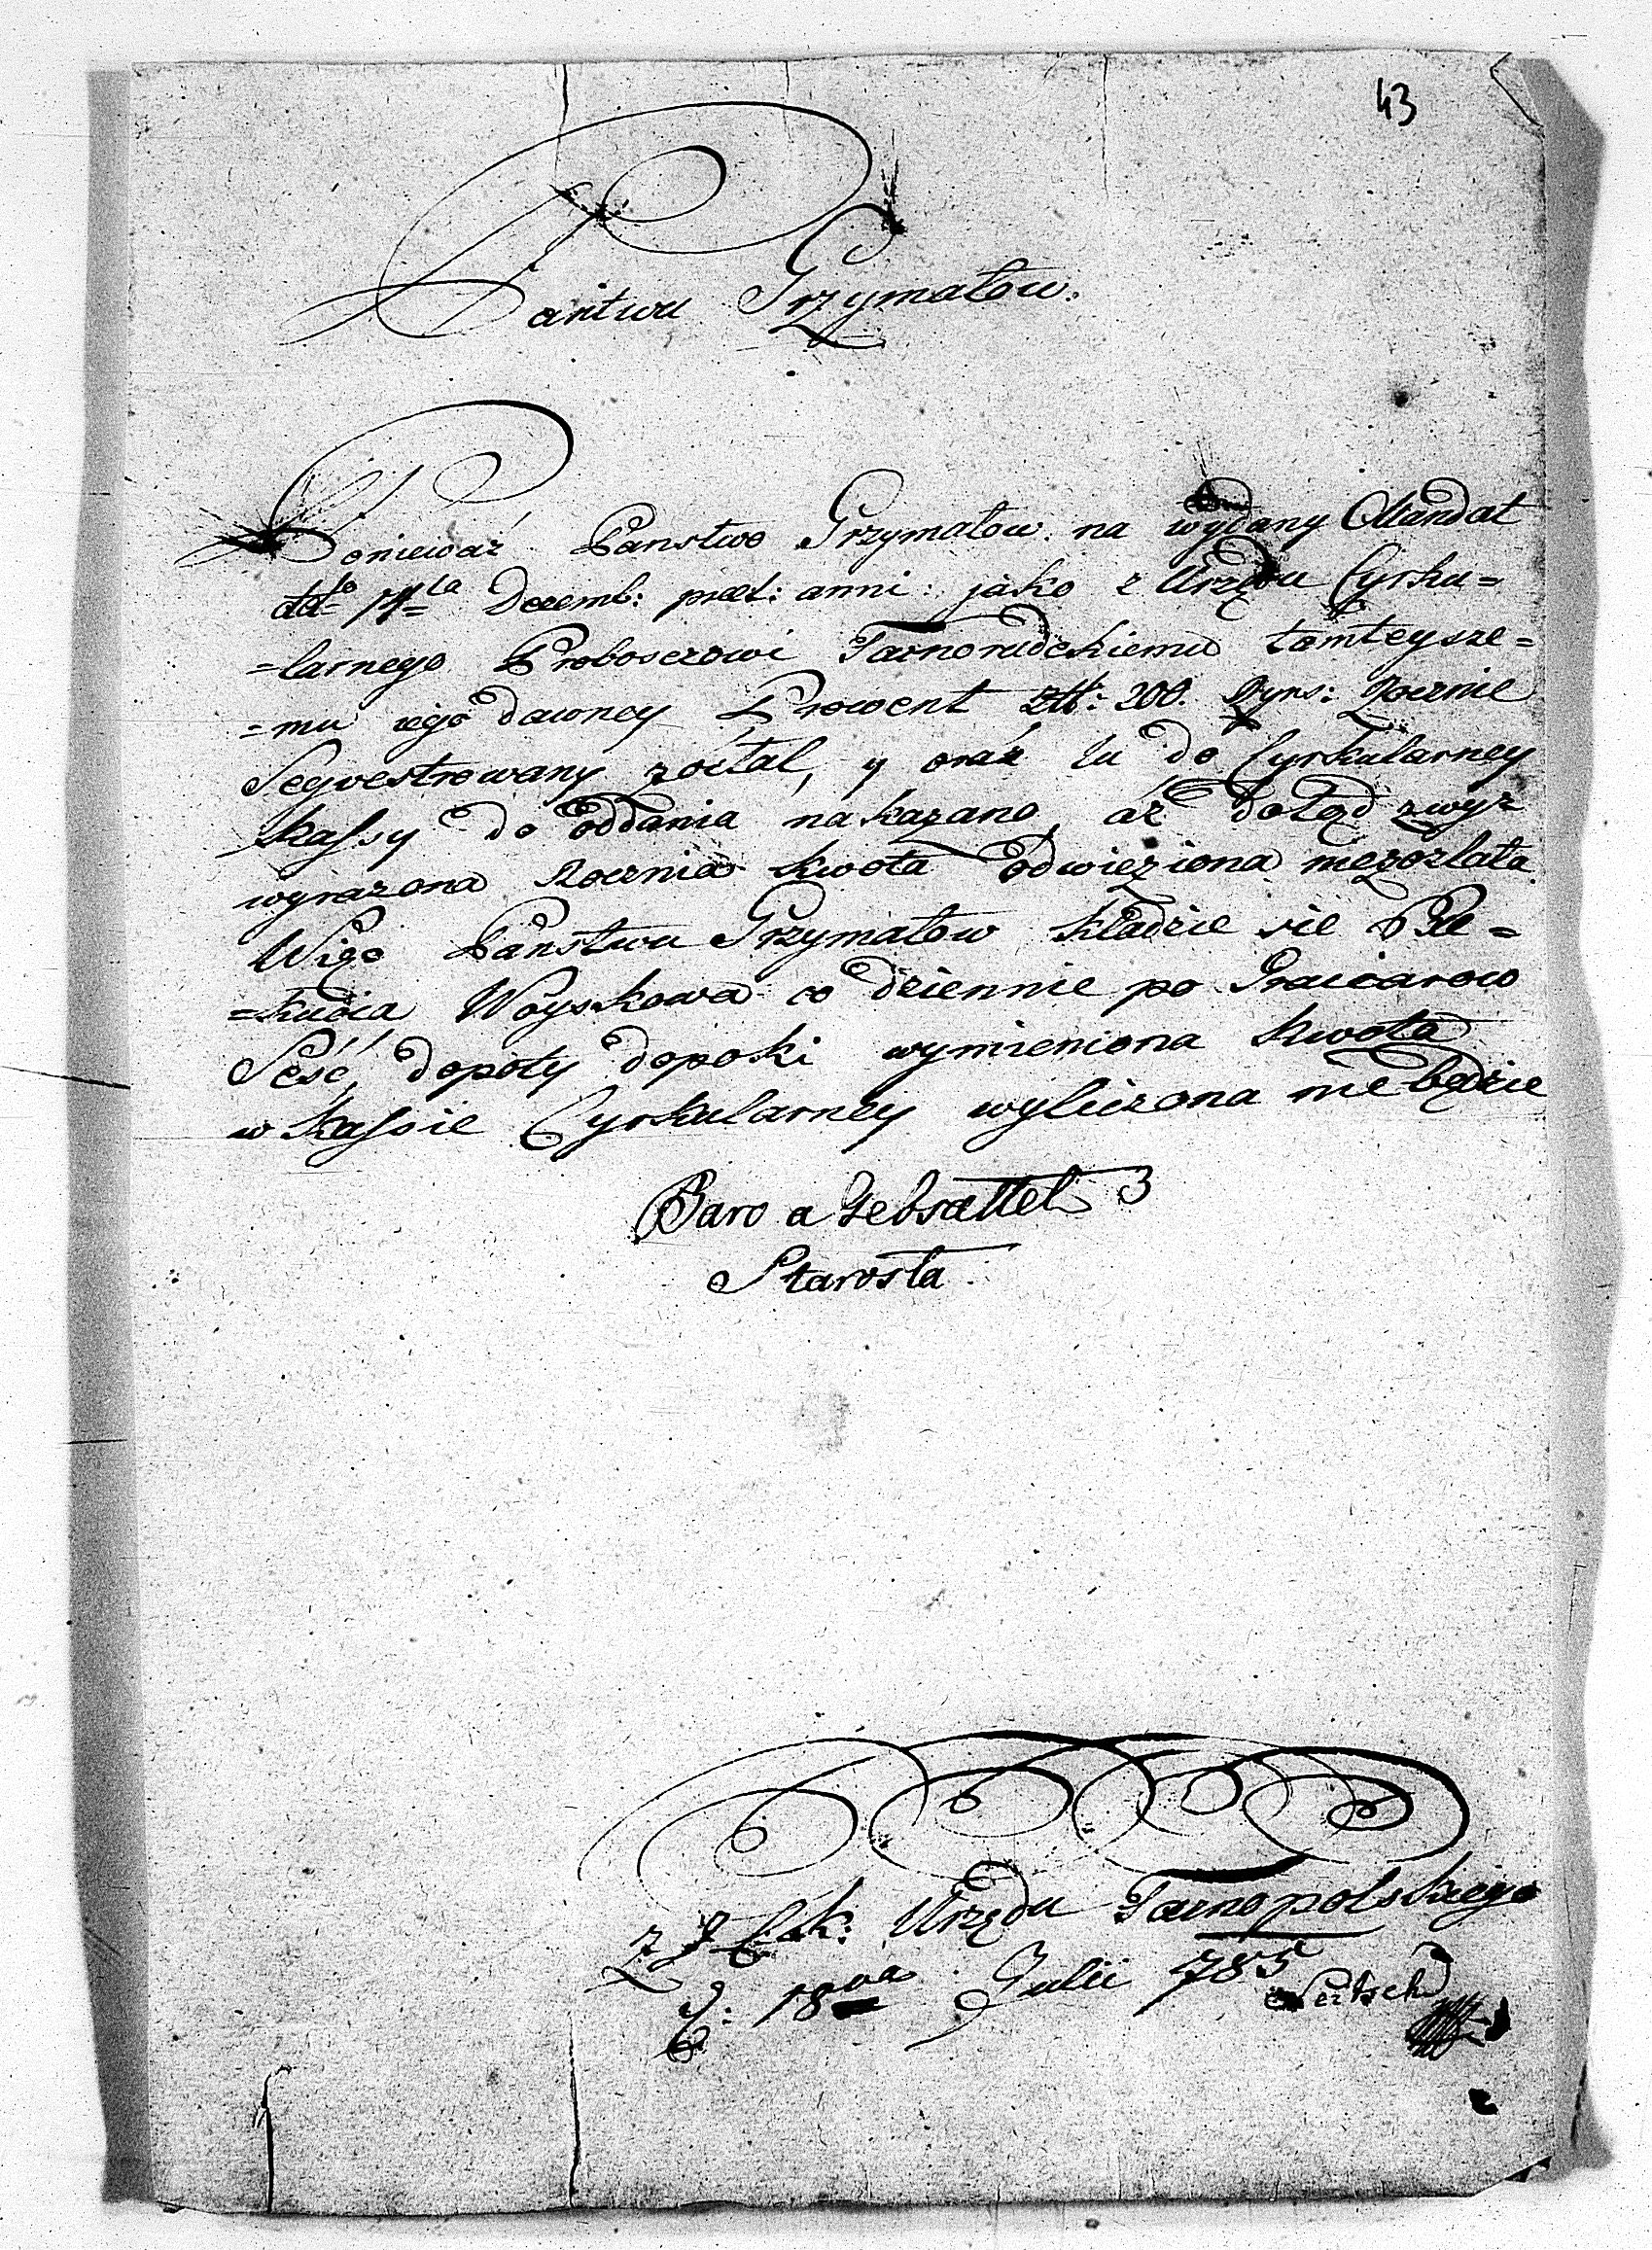 43
Państwu Grzymałow.
Poniewaź Państwo Grzymałow. na wydany Mandat
ddto 14ta Decemb: præt: anni: jako z Urzędu Cyrku=
=larnego Proboszczowi Tarnorudzkiemu tamteysze=
=mu jego dawney Prowent 200. Ryns: Rocznie
Seqvestrowany został, y oraz tu do Cyrkularney
Kassy do oddania nakazano, aź dotąd zwyz
wyrazona Rocznia kwota odwieziona niezozłała.
Więc Państwu Grzymałow kładzie sie Exe=
=kucia Woyskowa co dziennie po Graicarow
Seść, dopoty dopoki wymieniona kwota
w Kassie Cyrkularney wyliczona nie będzie
Baro a Gebsattel
Starosta.
Z J. C. k: Urzędu Tarnopolskiego
D: 18va Julii 785